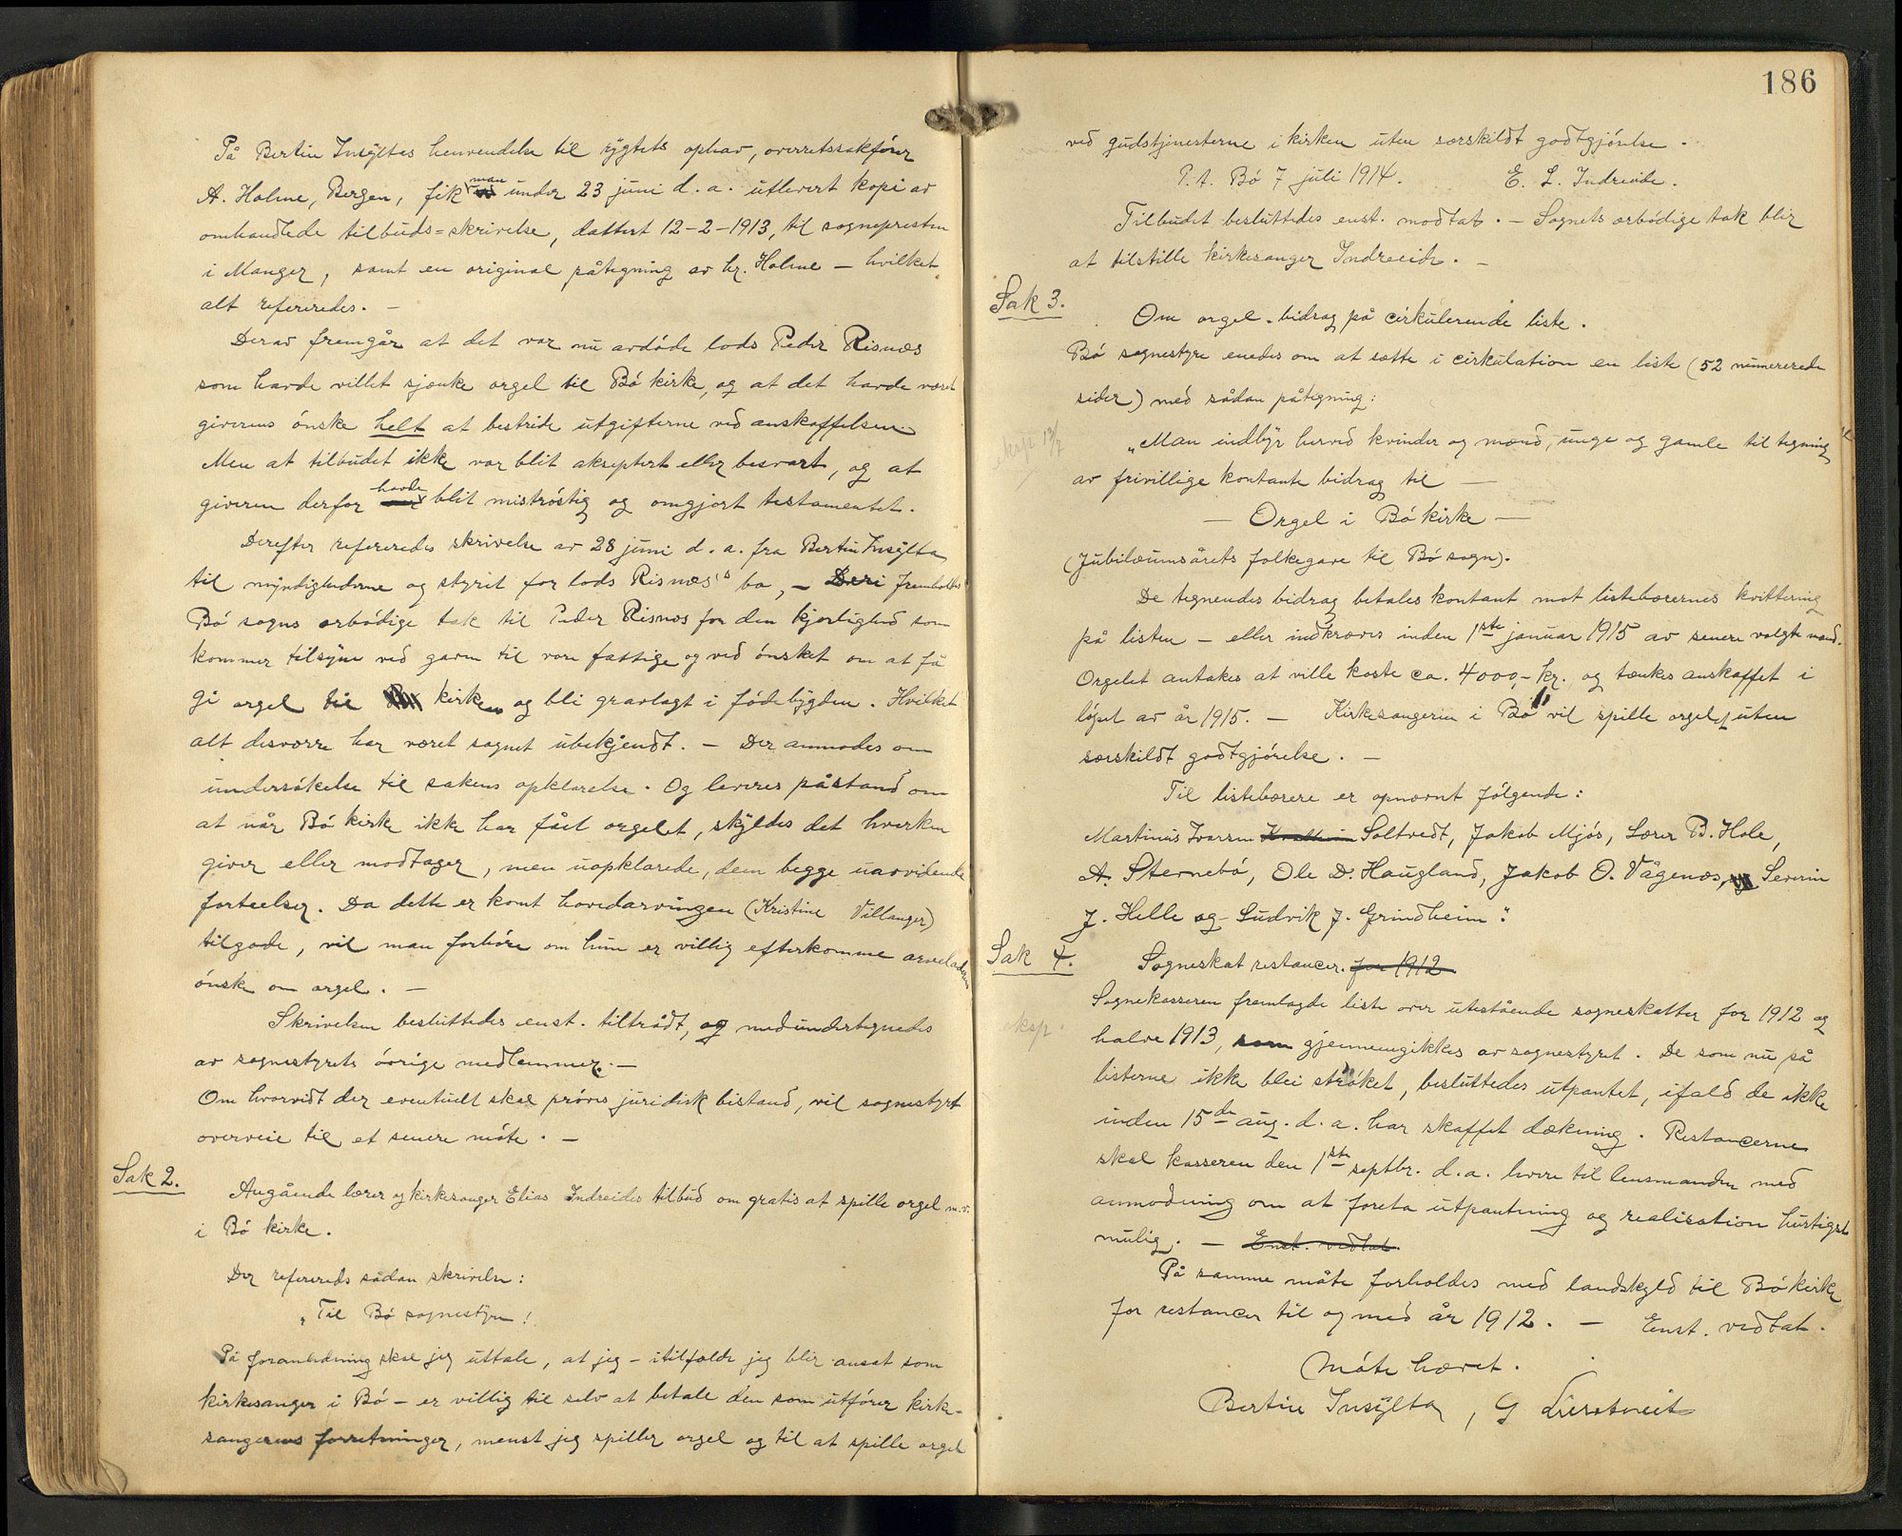 På Bertin Insyltas henvendelse til rygtets ophav, overretssakfører
A. Holme, Bergen, fik man under 23 juni d. a. utlevert kopi av
omhandlede tilbuds=skrivelse, dattert 12-2-1913, til sognepresten
i Manger, samt en original påtegning av hr. Holme – hvilket
alt refereredes. –
Derav fremgår at det var nu avdøde lods Peder Risnæs
som havde villet sjænke orgel til Bø kirke, og at det havde været
giverens ønske helt at bestride utgifterne ved anskaffelsen.
Men at tilbudet ikke var blit akseptert eller besvart, og at
giveren derfor havde blit mistrøstig og omgjort testamentet.
Derefter refereredes skrivelse av 28 juni d. a. fra Bertin Insylta
til myndigheterne og styret for lods Risnæs's bo, – Deri fremholdes
Bø sogns ærbødige tak til Peder Risnæs for den kjærlighed som
kommer tilsyne ved gaven til vore fattige og ved ønsket om at få
gi orgel til kirken og bli gravlagt i fødebygden. Hvilket
alt desværre har været sognet ubekjendt. – Der anmodes om
undersøkelse til sakens opklarelse. Og leveres påstand om
at når Bø kirke ikke har fået orgelet, skyldes det hverken
giver eller modtager, men uopklarede, dem begge uavvidende
forteelser. Da dette er komt hovedarvingen (Kristine Villanger)
tilgode, vil man forhøre om hun er villig efterkomme arveladers
ønske om orgel. –
Skrivelsen besluttedes enst. tiltrådt, og medundertegnedes
av sognestyrets øvrige medlemmer. –
Om hvorvidt der eventuelt skal prøves juridisk bistand, vil sognestyret
overveie til et senere møte. –
Sak 2.
Angående lærer og kirkesanger Elias Indreides tilbud om gratis at spille orgel m.v.
i Bø kirke.
Der refereredes sådan skrivelse:
"Til Bø sognestyre!
På foranledning skal jeg uttale, at jeg – itilfælde jeg blir ansat som
kirkesanger i Bø – er villig til selv at betale den som utfører kirke-
sangerens forretninger, menst jeg spiller orgel og til at spille orgel
186
ved gudstjenesterne i kirken uten særskildt godtgjørelse.
P.t. Bø 7 juli 1914. E. L. Indreide.
Tilbudet besluttedes enst. modtat. – Sognets ærbødige tak blir
at tilstille kirkesanger Indreide. –
Sak 3.
Om orgel-bidrag på cirkulerende liste.
Bø sognestyre enedes om at sætte i cirkulation en liste (52 nummererede
sider) med sådan påtegning:
eksp 13/7
"Man indbyr herved kvinder og mænd, unge og gamle til tegning
av frivillige kontante bidrag til –
– Orgel i Bø kirke –
(Jubilæumsårets folkegave til Bø sogn).
De tegnendes bidrag betales kontant mot listebærernes kvittering
på listen – eller indkræves inden 1ste januar 1915 av senere valgte mænd.
Orgelet antakes at ville koste ca. 4000,- kr. og tænkes anskaffet i
løpet av år 1915. – Kirkesangeren i Bø vil spille orgelet uten
særskildt godtgjørelse. –
Til listebærere er opnævnt følgende:
Martinus Ivarsen Soltvedt, Jakob Mjøs, Lærer B. Hole,
A. Sternebø, Ole D. Haugland, Jakob O. Vågenæs, Severin
J. Helle og Ludvik J. Grindheim".
Sak 4.
Sogneskat restancer. for 1912
Sognekasseren fremlagde liste over utestående sogneskatter for 1912 og
eksp.
halve 1913, som gjennemgikkes av sognestyret. De som nu på
listerne ikke blei strøket, besluttedes utpantet, ifald de ikke
inden 15de aug. d. a. har skaffet dækning. Restancerne
skal kasseren den 1ste septbr. d. a. levere til lensmanden med
anmodning om at foreta utpantning og realisation hurtigst
mulig. – Enst. vedtat.
På samme måte forholdes med landskyld til Bø kirke
for restancer til og med år 1912. – Enst. vedtat.
Møte hævet.
Bertin Insylta, G Liervtveit